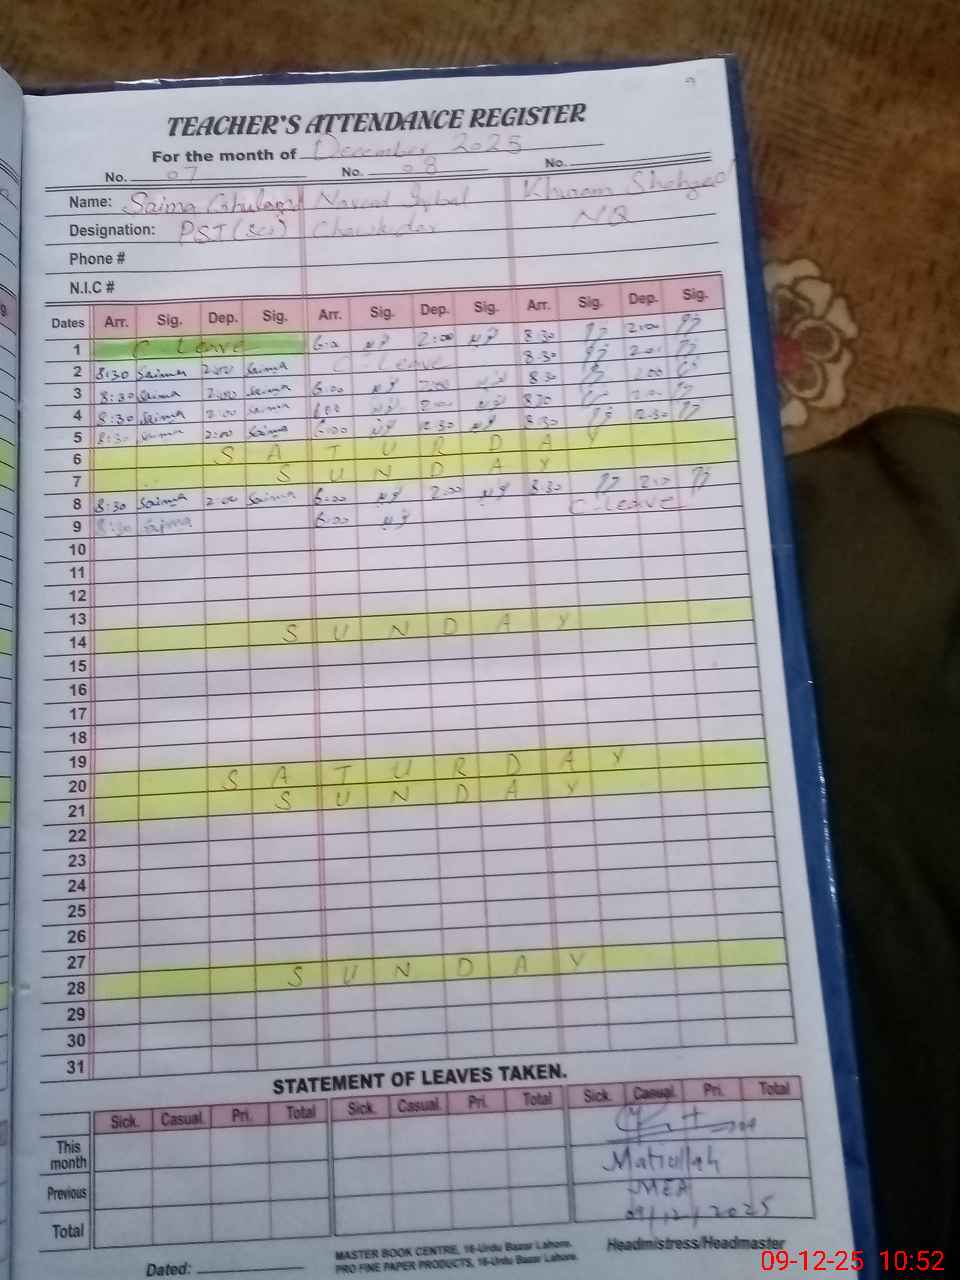 TEACHER'S ATTENDANCE REGISTER
For the month of December 2025
No. 07 No. 08 No.
Name: Saima Naveed Iqbal Khuram
Designation: PST (Sci) Chowkidar NQ
Phone #
N.I.C #
Dates Arr. Sig. Dep. Sig. Arr. Sig. Dep. Sig. Arr. Sig. Dep. Sig.
1 C. Leave 2:00 8:30 2:00
2 8:30 Saima 2:00 Saima C Leave 8:30
3 8:30 Saima 2:00 Saima 6:00 2:00
4 8:30 Saima 2:00 Saima 2:00
5 8:30 Saima 2:00 Saima 6:00 12:30 8:30 12:30
6 S A T U R D A Y
7 S U N D A Y
8 8:30 Saima 2:00 Saima 6:00 2:00 8:30
9 8:30 Saima 6:00 C-Leave
10
11
12
13
14 S U N D A Y
15
16
17
18
19
20 S A T U R D A Y
21 S U N D A Y
22
23
24
25
26
27
28 S U N D A Y
29
30
31
STATEMENT OF LEAVES TAKEN.
Sick. Casual. Pri. Total Sick. Casual. Pri. Total Sick. Casual. Pri. Total
This month
Matiullah
Previous
MEA
Total
09/12/2025
Headmistress/Headmaster
Dated:
MASTER BOOK CENTRE, 16-Urdu Bazar Lahore.
PRO FINE PAPER PRODUCTS, 16-Urdu Bazar Lahore.
09-12-25 10:52